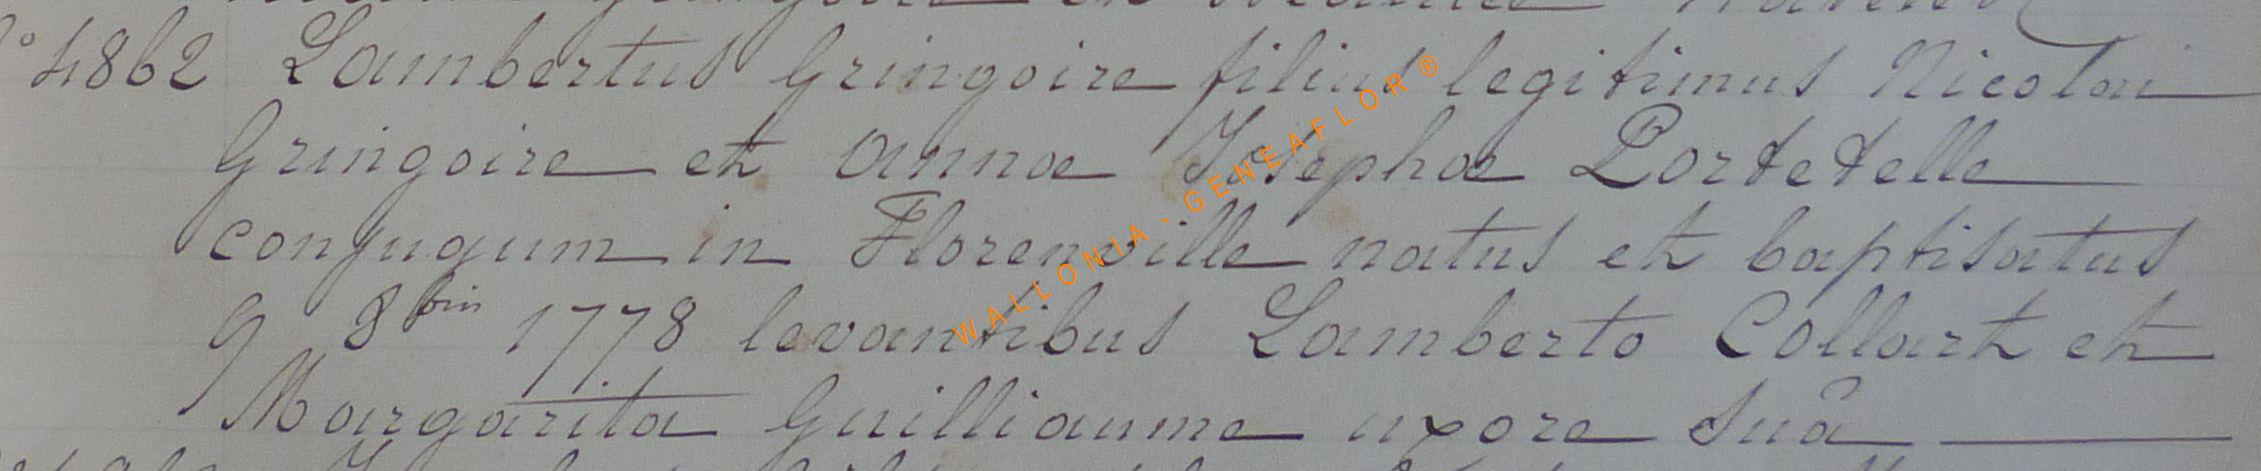 N° 4862 Lambertus Gringoire filius legitimus Nicolai
Gringoire et annæ Josephæ Portetelle
conjugum in Florenville natus et baptisatus
9 8bris 1778 levantibus Lamberto Collart et
Margarita Guilliaume uxore suâ
WALLONIA - GENEAFLOR ®